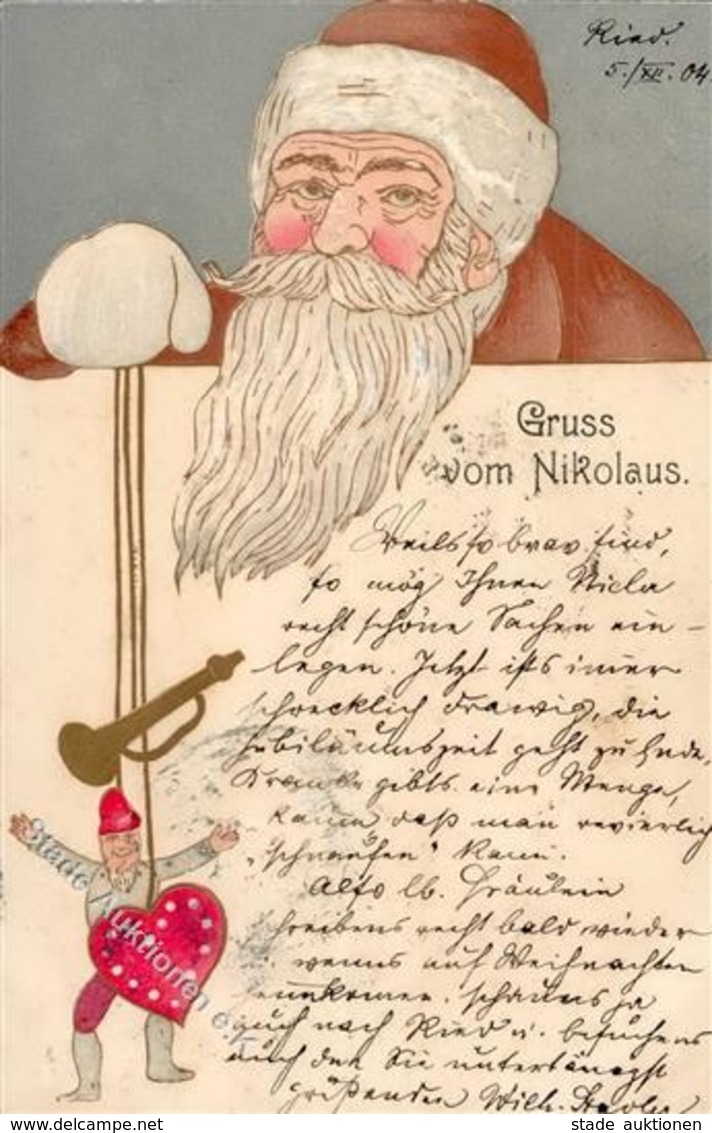 Ried.
5./XII. 04.
Gruss
vom Nikolaus.
Weils so brav sind,
so mög Ihnen Nicla
recht schöne Sachen ein-
legen. Jetzt ists immer
schrecklich drawig, die
Jubiläumszeit geht zu Ende,
Kranke gibts eine Menge,
kaum daß man revierlich
"schnaufen" kann.
Also lb. Fräulein
schreibens recht bald wieder
wenns auf Weihnachten
schauns ja
auch nach Ried u. besuchens
auch den Sie untertänigst
grüßenden Wilh.
Stade Auktionen e.K.
www.delcampe.net
stade auktionen